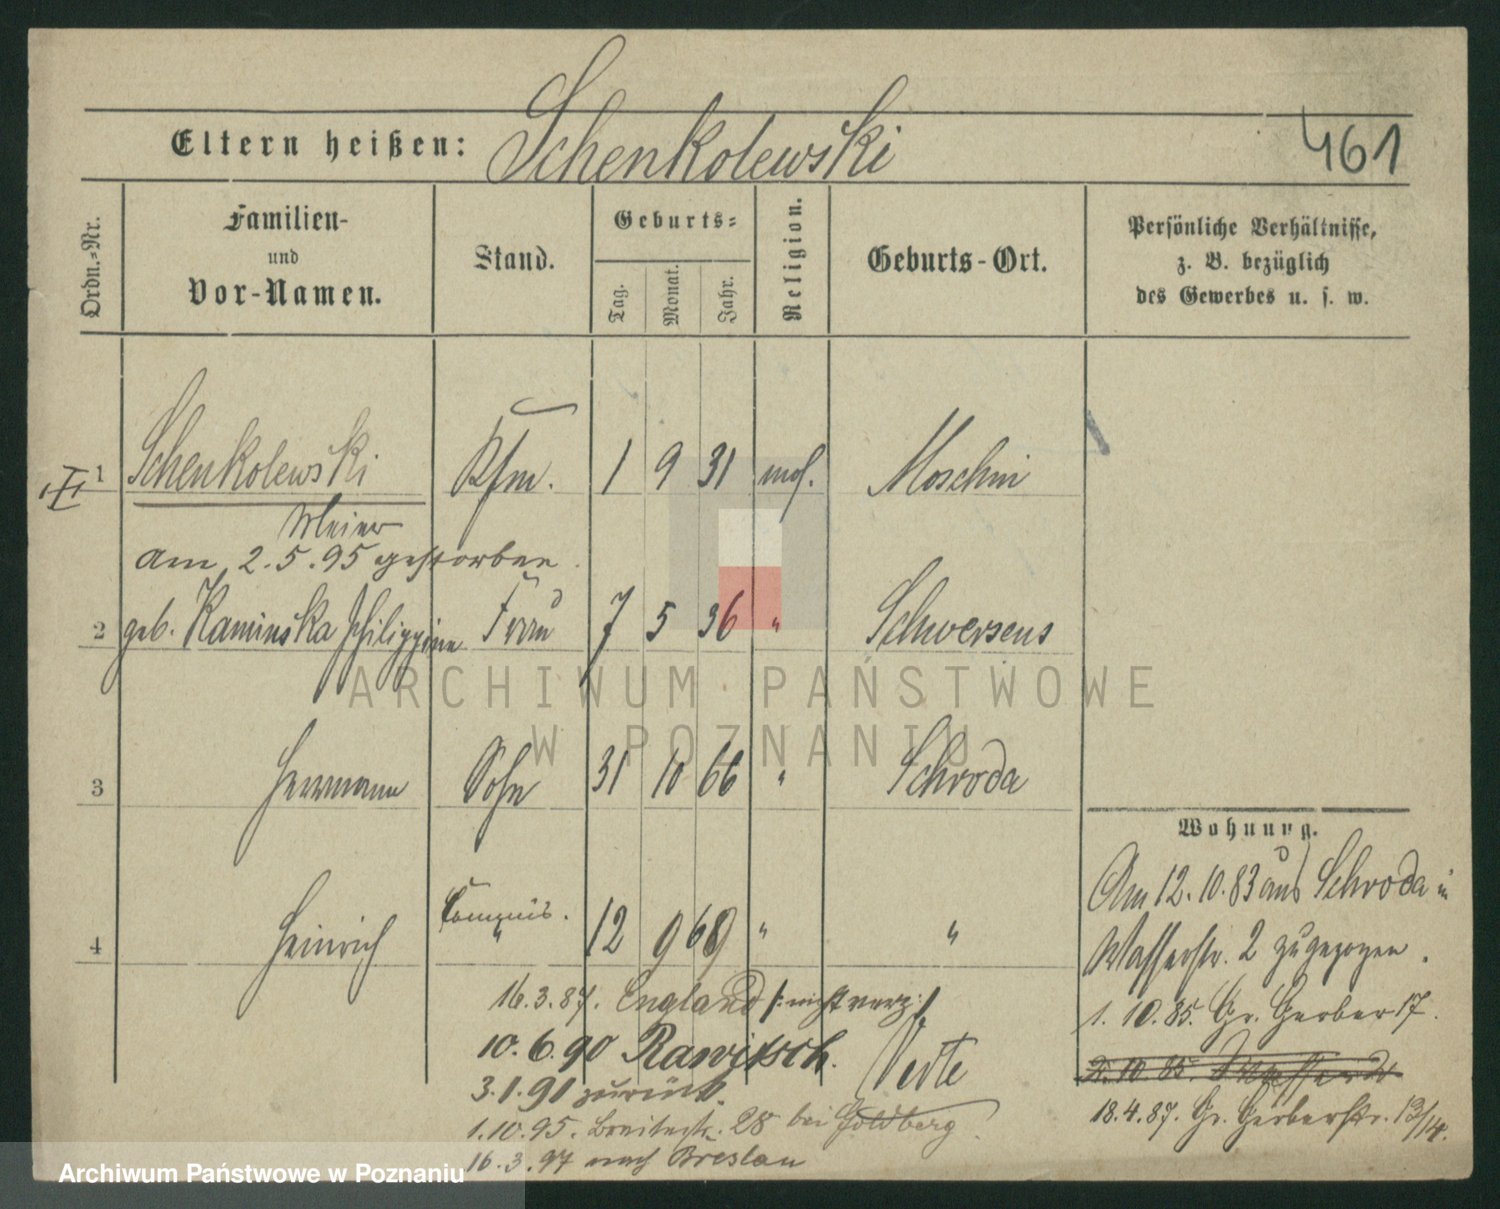 461
Eltern heißen: Schenkolewski
Ordn.-Nr.
Familien- und Vor-Namen.
Stand.
Geburts-
Tag.
Monat.
Jahr.
Religion.
Geburts-Ort.
Persönliche Verhältnisse,
z. B. bezüglich
des Gewerbes u. s. w.
1 Schenkolewski Kfm. 1 9 31 mos. Moschin
Meier
am 2.5.95 gestorben.
2 geb. Kaminska Philippine Frau 7 5 36 " Schwersens
3 Herrmann Sohn 31 10 66 " Schroda
4 Heinrich Commis. " 12 9 69 " "
16.3.87. England /: nicht verz :/
10.6.90 Rawitsch.
3.1.91 zurück.
1.10.95. Breitestr. 28 bei Goldberg.
16.3.97 nach Breslau
Wohnung.
Am 12.10.83 aus Schroda in
Wasserstr. 2 zugezogen.
1. 10. 85. Gr. Gerber 17.
18.4.87. Gr. Gerberstr. 13/14.
ARCHIWUM PAŃSTWOWE
W POZNANIU
Archiwum Państwowe w Poznaniu